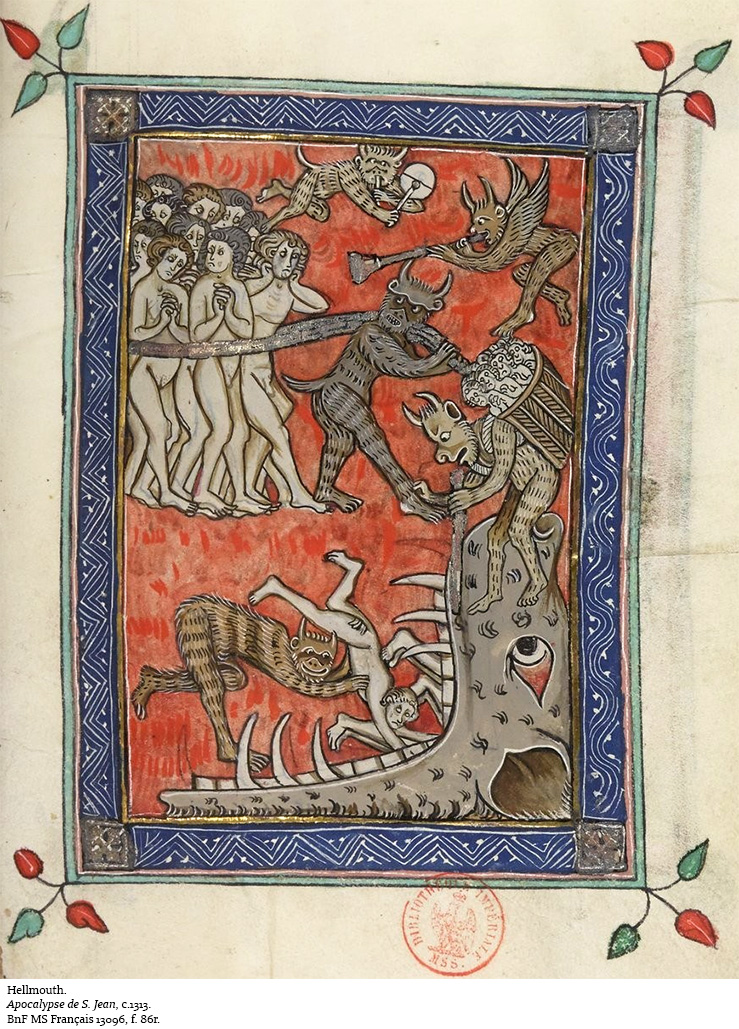 IMPÉRIALE
MSS.
Hellmouth.
Apocalypse de S. Jean, c.1313.
BnF MS Français 13096, f. 86r.